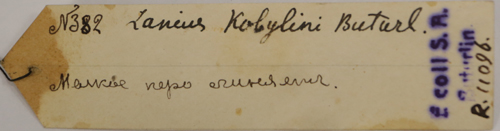 №382 Lanius Kobylini Buturl.
Мелкое перо
E coll S. A.
Buturlin
R. 11096.